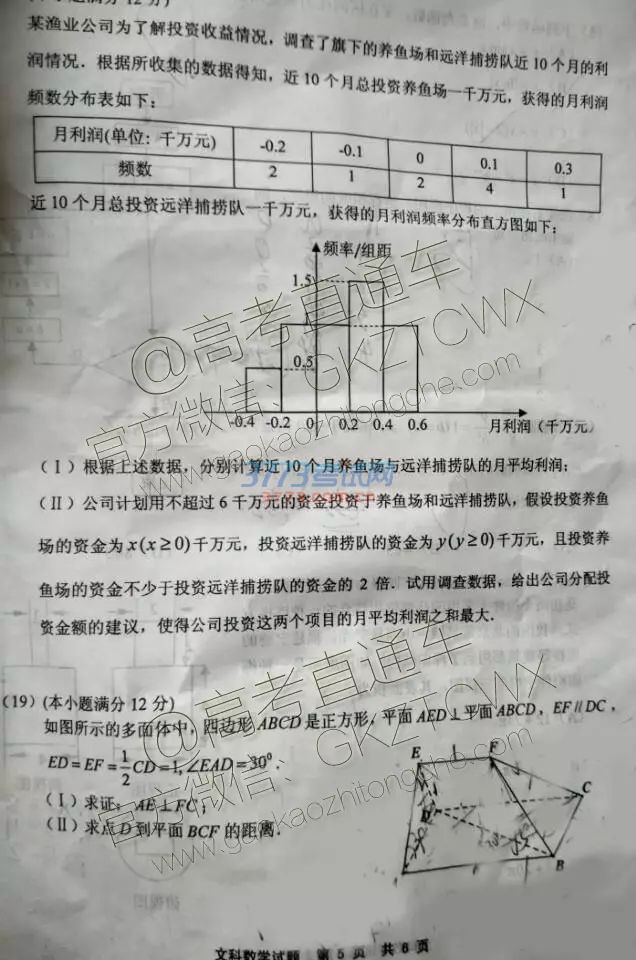 某渔业公司为了解投资收益情况，调查了旗下的养鱼场和远洋捕捞队近 10 个月的利
润情况．根据所收集的数据得知，近 10 个月总投资养鱼场一千万元，获得的月利润
频数分布表如下：
月利润(单位: 千万元) -0.2 -0.1 0 0.1 0.3
频数 2 1 2 4 1
近 10 个月总投资远洋捕捞队一千万元，获得的月利润频率分布直方图如下：
频率/组距
1.5
1
0.5
-0.4 -0.2 0 0.2 0.4 0.6 月利润（千万元）
（Ⅰ）根据上述数据，分别计算近 10 个月养鱼场与远洋捕捞队的月平均利润；
（Ⅱ）公司计划用不超过 6 千万元的资金投资于养鱼场和远洋捕捞队，假设投资养鱼
场的资金为 x(x≥0)千万元，投资远洋捕捞队的资金为 y(y≥0)千万元，且投资养
鱼场的资金不少于投资远洋捕捞队的资金的 2 倍．试用调查数据，给出公司分配投
资金额的建议，使得公司投资这两个项目的月平均利润之和最大．
（19）(本小题满分 12 分)
如图所示的多面体中，四边形 ABCD 是正方形，平面 AED⊥平面 ABCD，EF∥DC，
ED=EF=1/2CD=1,∠EAD=30⁰．
(Ⅰ)求证：AE⊥FC；
(Ⅱ)求点 D 到平面 BCF 的距离．
E F
C
D
B
文科数学试题 第 5 页 共 6 页
@高考直通车
官方微信：GKZTCWX
www.gaokaozhitongche.com
3773考试网
@高考直通车
官方微信：GKZTCWX
www.gaokaozhitongche.com